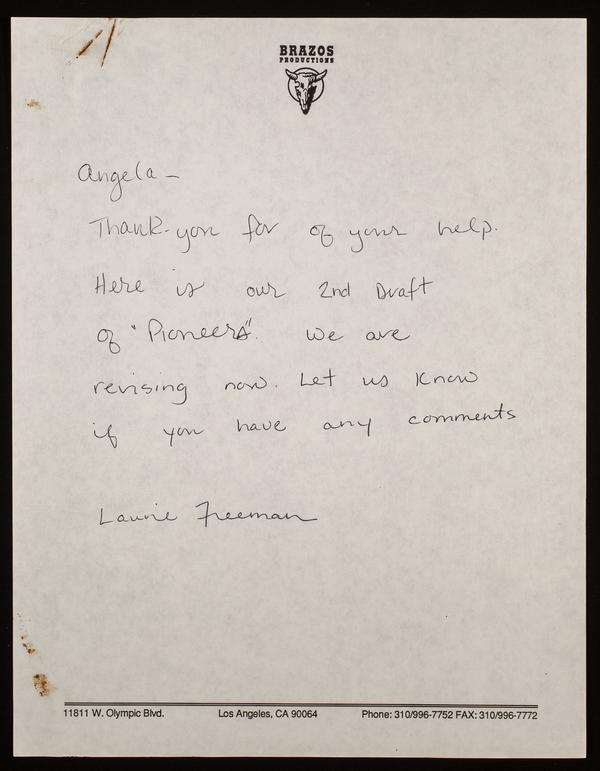 BRAZOS
PRODUCTIONS
Angela –
Thank-you for of your help.
Here is our 2nd Draft
of "Pioneers". We are
revising now. Let us know
if you have any comments
Laurie Freeman
11811 W. Olympic Blvd. Los Angeles, CA 90064 Phone: 310/996-7752 FAX: 310/996-7772